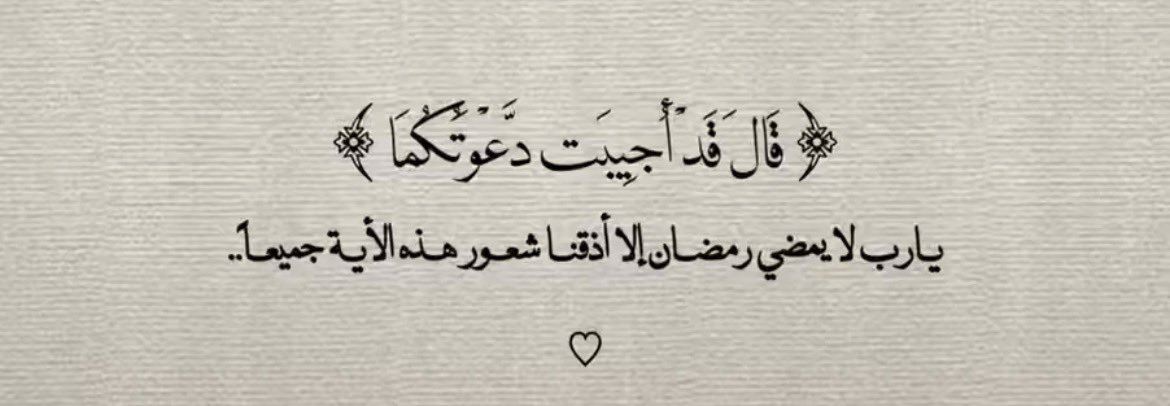 ﴿ قَالَ قَدۡ أُجِيبَت دَّعۡوَتُكُمَا ﴾
يارب لا يمضي رمضان إلا أذقنا شعور هذه الأية جميعاً..
♡